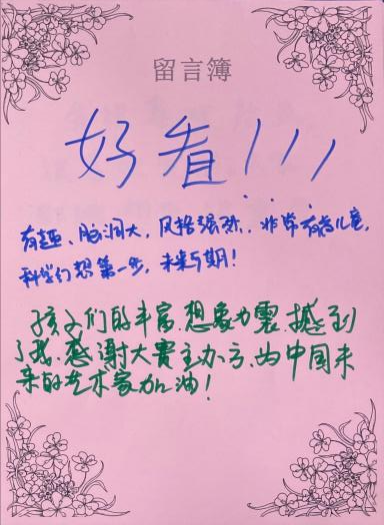 留言簿
好看!!!
有趣、脑洞大,风格强烈,非常有
科学幻想第一步,未来可期!
孩子们的丰富想象力震撼到
了我.感谢大赛主办方、为中国未
来的艺术家加油!